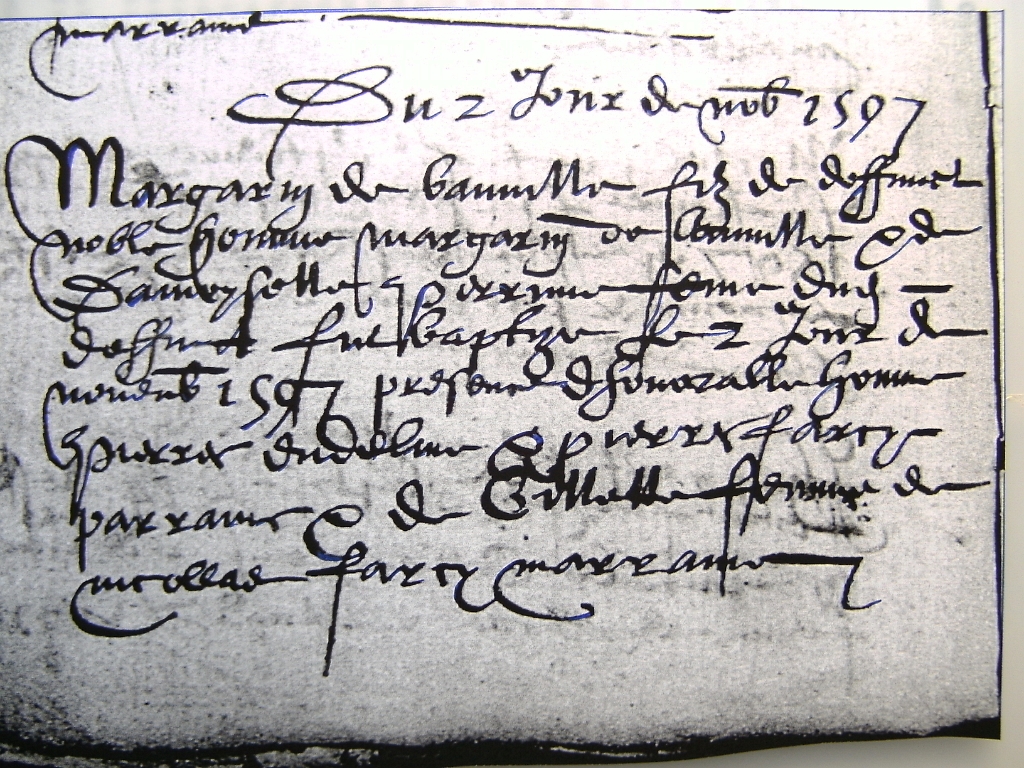 marraine
Du 2 Jour de novb 1597
Margarin de banville filz de deffunct
noble homme margarin de banville & de
Damoyselle perrine feme dud
deffunct fut baptize le 2 Jour de
novemb 1597 presence dhonorable homme
pierre & pierre farcy
parrains & de Gillette femme de
nicollas farcy marraine